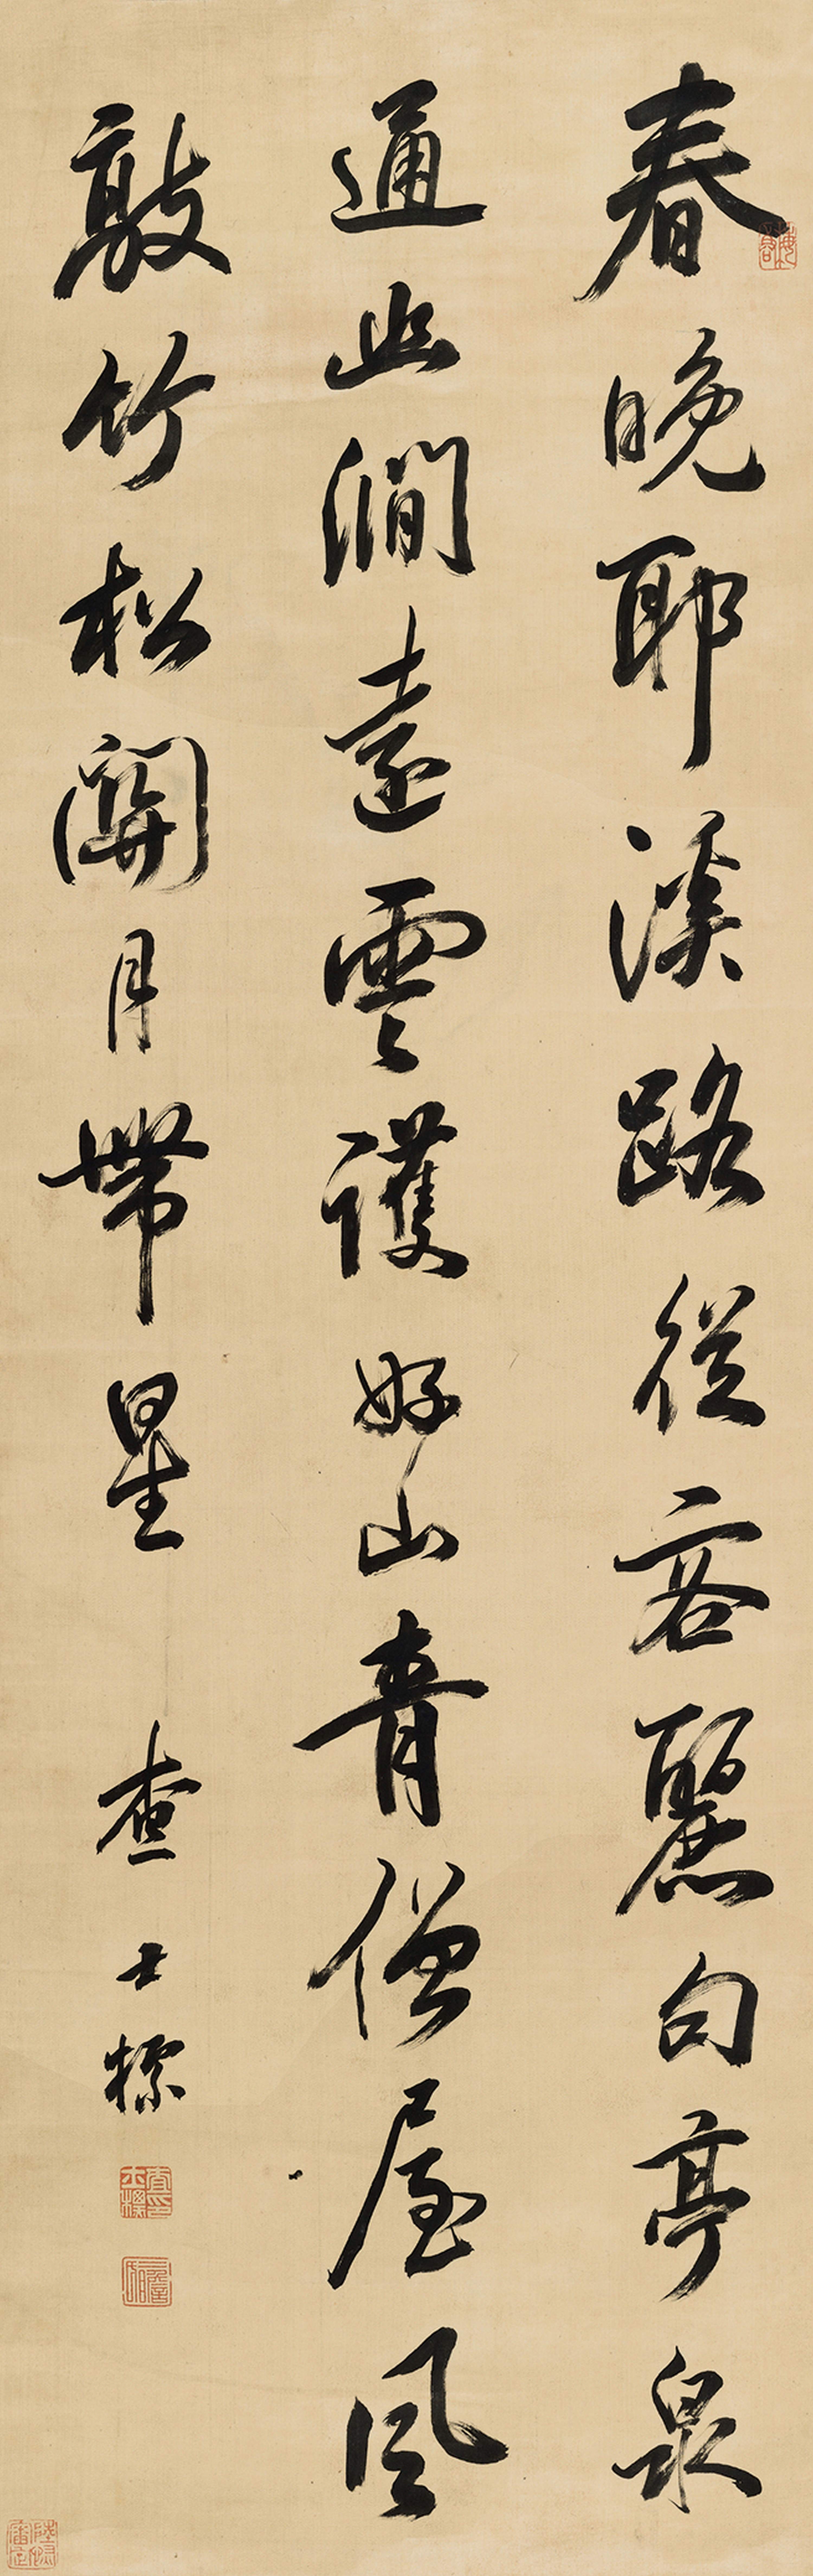 春晚耶溪路從容麗句亭泉
通幽澗遠雲護好山青僧屋風
敲竹松關月帶星 查士標